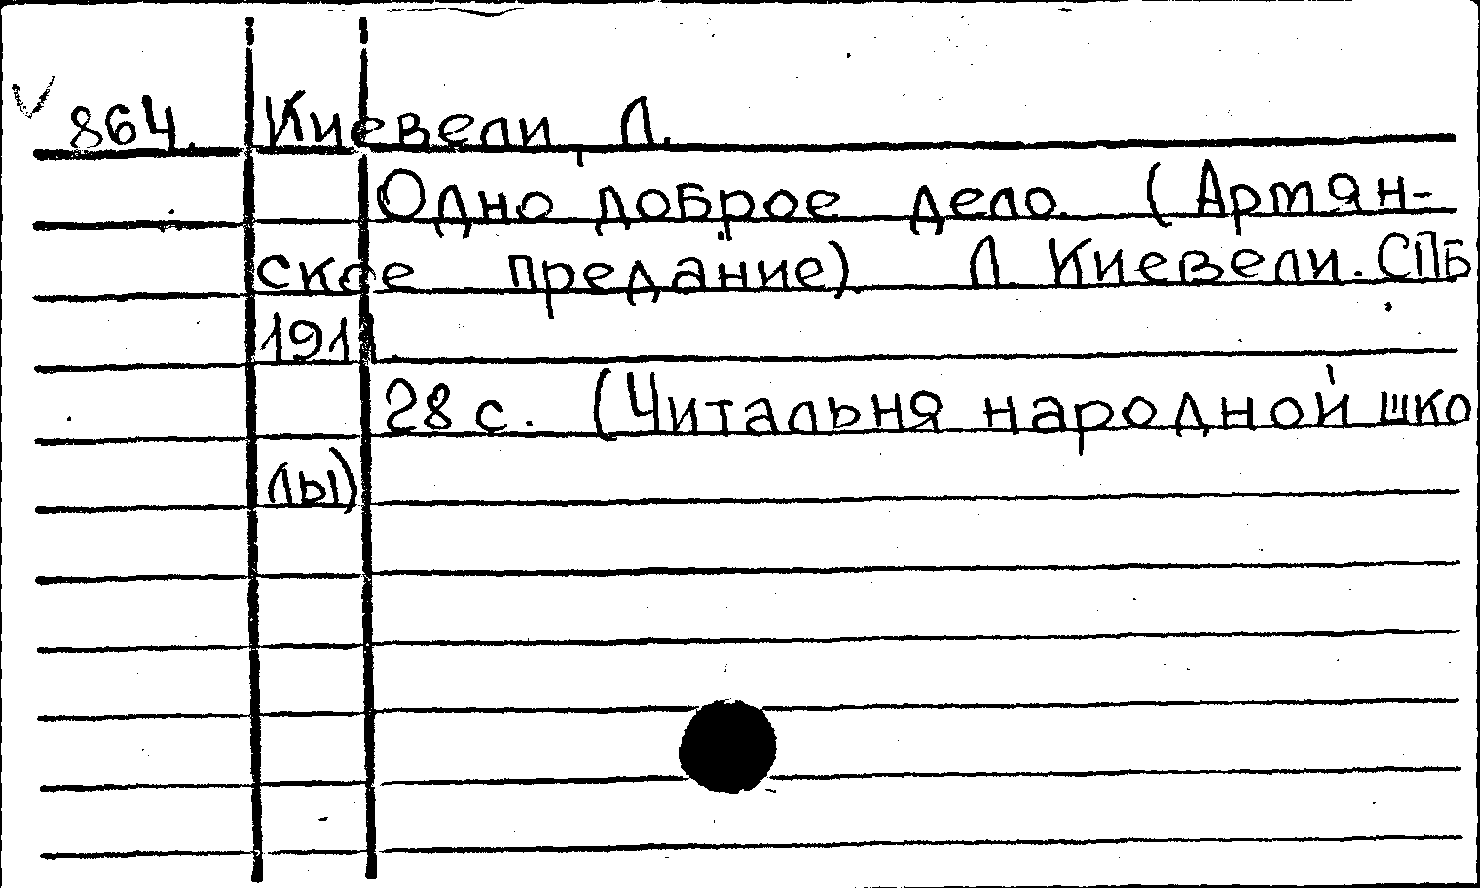 864. Киевели, Л.
Одно доброе дело. (Артян-
ское предание) Л. Киевели. СПБ
1911.
28 с. (Читальня народной шко
лы)